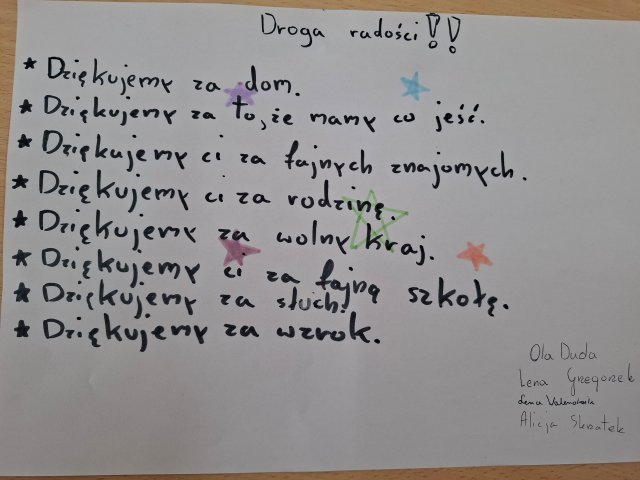 Droga radości!!
* Dziękujemy za dom.
* Dziękujemy za to, że mamy co jeść.
* Dziękujemy ci za fajnych znajomych.
* Dziękujemy ci za rodzinę.
* Dziękujemy za wolny kraj.
* Dziękujemy ci za fajną szkołę.
* Dziękujemy za słuch.
* Dziękujemy za wzrok.
Ola Duda
Lena Grzegorzek
Lena
Alicja Skrzatek